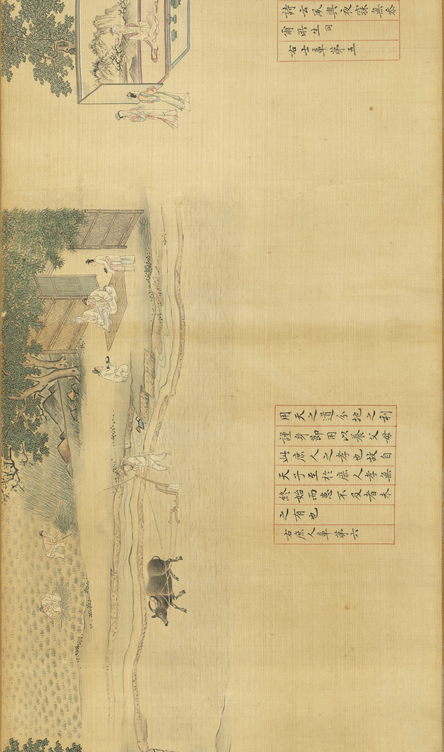 詩云夙興夜寐無忝
爾所生
右士章第五
用天之道分地之利
謹身節用以養父母
此庶人之孝也故自
天子至於庶人孝無
終始而患不及者未
之有也
右庶人章第六